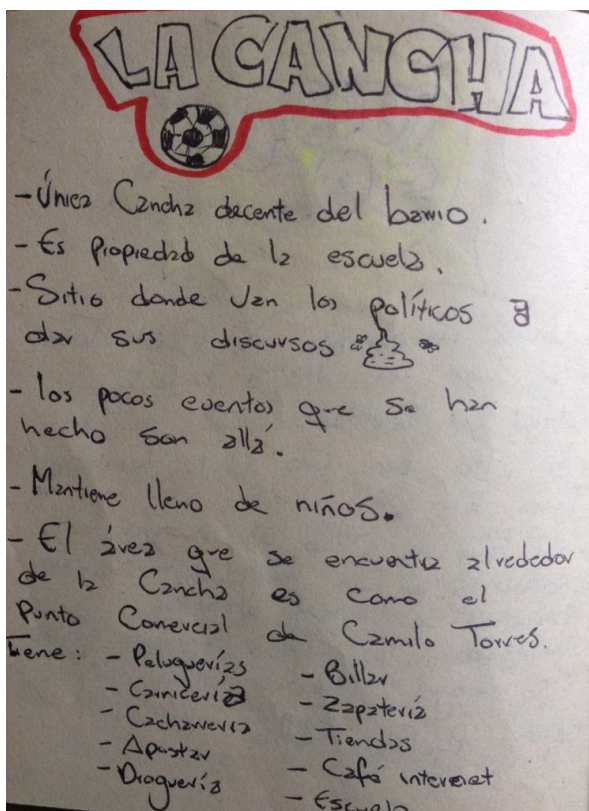 LA CANCHA
- Única Cancha decente del barrio.
- Es propiedad de la escuela.
- Sitio donde van los políticos a
dar sus discursos
- los pocos eventos que se han
hecho son allá.
- Mantiene lleno de niños.
- El área que se encuentra alrededor
de la Cancha es como el
Punto Comercial de Camilo Torres.
tiene: - Peluquerías - Billar
- Carnicería - Zapatería
- Cacharrería - Tiendas
- Apostar - Café internet
- Droguería - Escuela